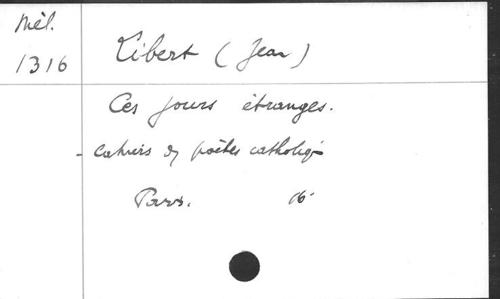 Mél.
1316
Libert (Jean)
Ces jours étranges.
- Cahiers d poètes catholiq
Paris. 16°